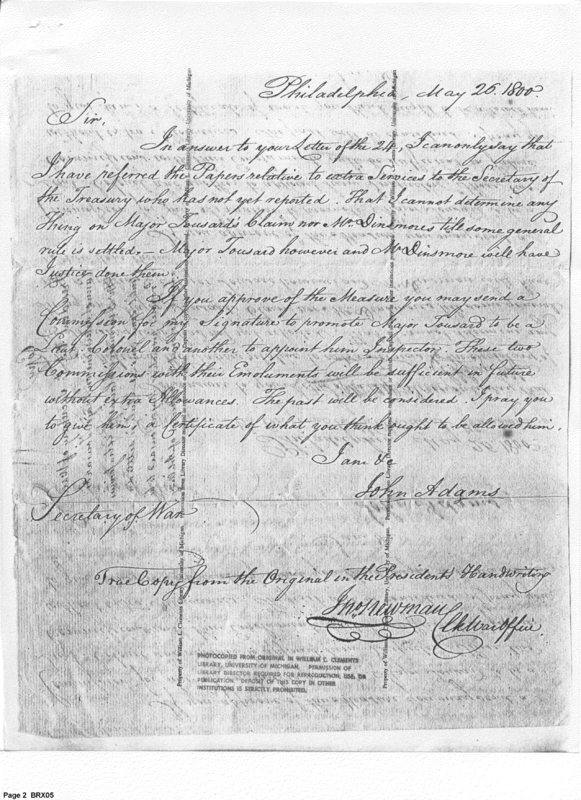 Philadelphia May 26. 1800
Sir,
In answer to your Letter of the 24, I can only say that
I have referred the Papers relative to extra Services to the Secretary of
the Treasury who has not yet reported. That I cannot determine any
Thing on Major Tousard's Claim nor Mr. Dinsmores till some general
rule is settled. — Major Tousard however and Mr. Dinsmore will have
Justice done them.
If you approve of the Measure you may send a
Commission for my Signature to promote Major Tousard to be a
Lieut Colonel and another to appoint him Inspector. These two
Commissions with their Emoluments will be sufficient in future
without extra Allowances. The past will be considered. I pray you
to give him, a Certificate of what you think ought to be allowed him.
I am &c
John Adams
Secretary of War
True Copy from the Original in the Presidents Handwriting
Jno. Newman
Clk War Office.
PHOTOCOPIED FROM ORIGINAL IN WILLIAM L. CLEMENTS
LIBRARY, UNIVERSITY OF MICHIGAN. PERMISSION OF
LIBRARY DIRECTOR REQUIRED FOR REPRODUCTION, USE, OR
PUBLICATION. DEPOSIT OF THIS COPY IN OTHER
INSTITUTIONS IS STRICTLY PROHIBITED.
Property of William L. Clements Library, University of Michigan.
Page 2 BRX05